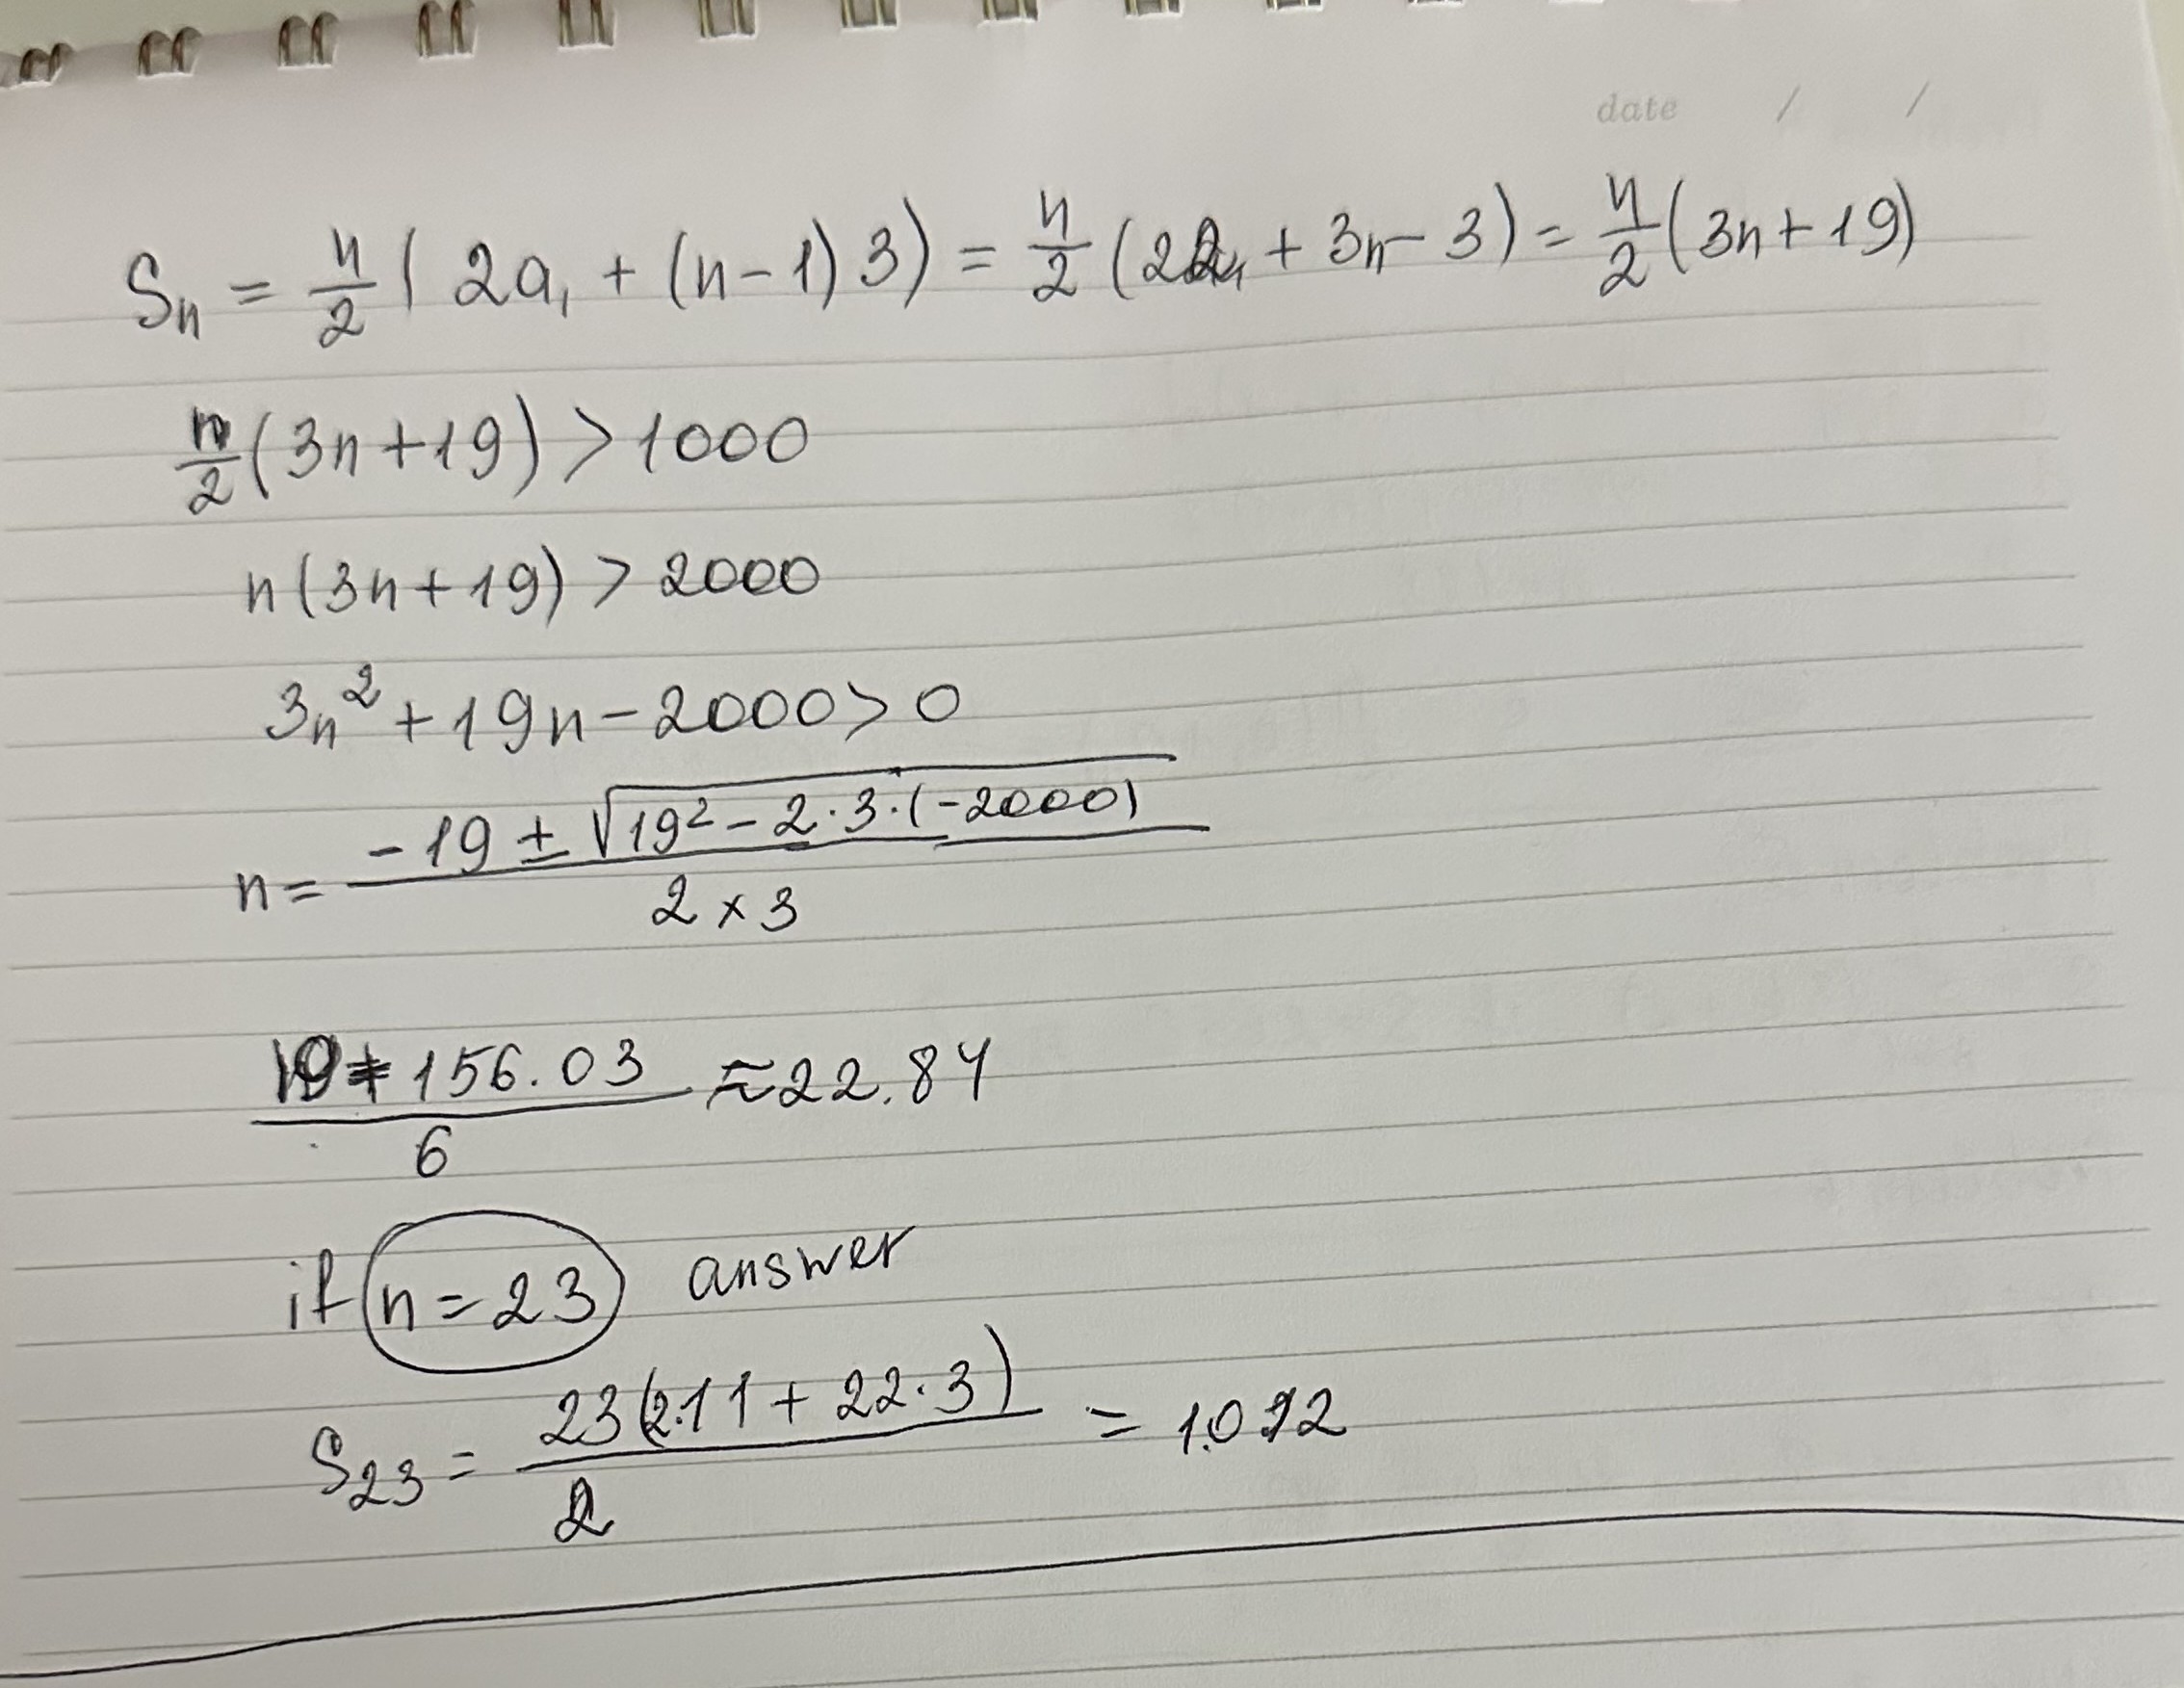 date / /
Sₙ = n/2 ( 2a₁ + (n-1) 3) = n/2 (22 + 3n - 3) = n/2 (3n + 19)
n/2 (3n + 19) > 1000
n(3n + 19) > 2000
3n² + 19n - 2000 > 0
n = (-19 ± √(19² - 2·3·(-2000))) / (2 × 3)
156.03 / 6 ≈ 22.84
if n = 23 answer
S₂₃ = 23(2·11 + 22·3) / 2 = 1.012